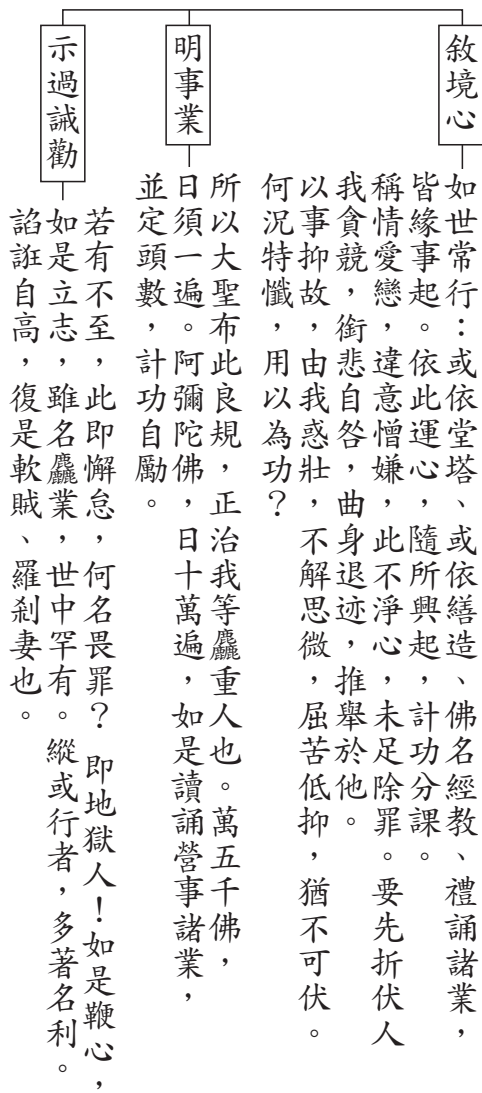 敘境心
如世常行：或依堂塔、或依繕造、佛名經教、禮誦諸業，
皆緣事起。依此運心，隨所興起，計功分課。
稱情愛戀，違意憎嫌，此不淨心，未足除罪。要先折伏人
我貪競，銜悲自咎，曲身退迹，推舉於他。
以事抑故，由我惑壯，不解思微，屈苦低抑，猶不可伏。
何況特懺，用以為功？
明事業
所以大聖布此良規，正治我等麤重人也。萬五千佛，
日須一遍。阿彌陀佛，日十萬遍，如是讀誦營事諸業，
並定頭數，計功自勵。
示過誡勸
若有不至，此即懈怠，何名畏罪？即地獄人！如是鞭心，
如是立志，雖名麤業，世中罕有。縱或行者，多著名利。
諂誑自高，復是軟賊、羅剎妻也。